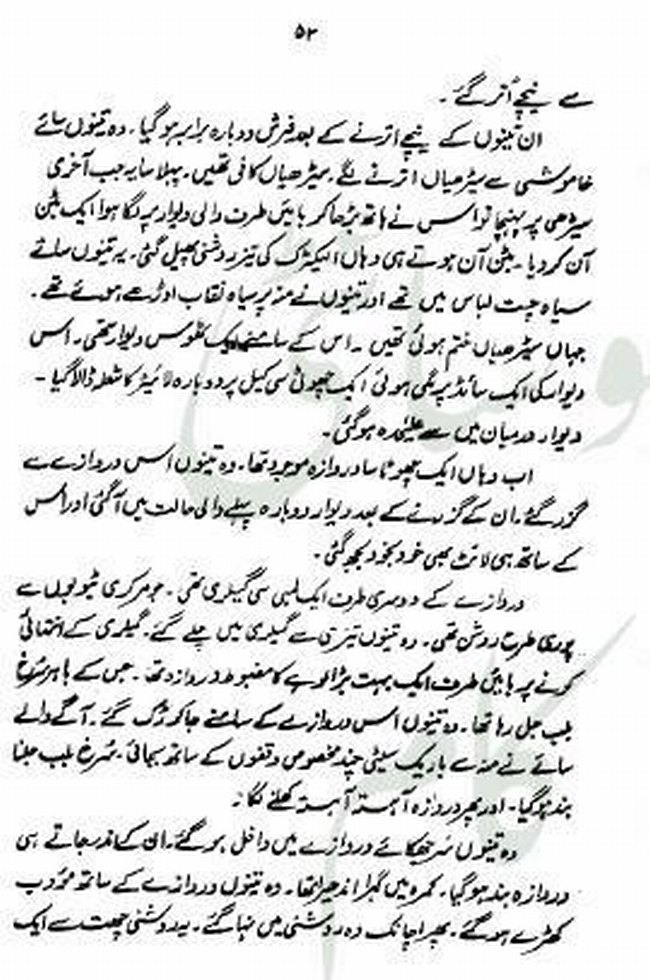 ۵۳
سے نیچے اُتر گئے ۔
ان تینوں کے نیچے اترنے کے بعد فرش دوبارہ برابر ہو گیا ۔ وہ تینوں سائے
خاموشی سے سیڑھیاں اترنے لگے ۔ سیڑھیاں کافی تھیں ۔ پہلا سایہ جب آخری
سیڑھی پر پہنچا تو اس نے ہاتھ بڑھا کر بائیں طرف والی دیوار پر لگا ہوا ایک بٹن
آن کر دیا ۔ بٹن آن ہوتے ہی وہاں الیکٹرک کی تیز روشنی پھیل گئی ۔ یہ تینوں سائے
سیاہ چست لباس میں تھے اور تینوں نے منہ پر سیاہ نقاب اوڑھے ہوئے تھے ۔
جہاں سیڑھیاں ختم ہوئی تھیں ۔ اس کے سامنے ایک ٹھوس دیوار تھی ۔ اس
دیوار کی ایک سائڈ پر لگی ہوئی ایک چھوٹی سی کیل پر دوبارہ لائیٹر کا شعلہ ڈالا گیا ۔
دیوار درمیان میں سے علیٰحدہ ہو گئی ۔
اب وہاں ایک چھوٹا سا دروازہ موجود تھا ۔ وہ تینوں اس دروازے سے
گزر گئے ۔ ان کے گزرنے کے بعد دیوار دوبارہ پہلے والی حالت میں آ گئی اور اس
کے ساتھ ہی لائٹ بھی خود بخود بجھ گئی ۔
دروازے کے دوسری طرف ایک لمبی سی گیلری تھی ۔ جو مرکری ٹیوبوں سے
پوری طرح روشن تھی ۔ وہ تینوں تیزی سے گیلری میں چلے گئے ۔ گیلری کے انتہائی
کونے پر بائیں طرف ایک بہت بڑا لوہے کا مضبوط دروازہ تھا ۔ جس کے باہر سُرخ
بلب جل رہا تھا ۔ وہ تینوں اس دروازے کے سامنے جا کر رُک گئے ۔ آگے والے
سائے نے منہ سے باریک سیٹی چند مخصوص وقفوں کے ساتھ بجائی ۔ سُرخ بلب جلنا
بند ہو گیا ۔ اور پھر دروازہ آہستہ آہستہ کھلنے لگا ۔
وہ تینوں سر جھکائے دروازے میں داخل ہو گئے ۔ ان کے اندر جاتے ہی
دروازہ بند ہو گیا ۔ کمرہ میں گہرا اندھیرا تھا ۔ وہ تینوں دروازے کے ساتھ مؤدب
کھڑے ہو گئے ۔ پھر اچانک وہ روشنی میں نہا گئے ۔ یہ روشنی چھت سے ایک